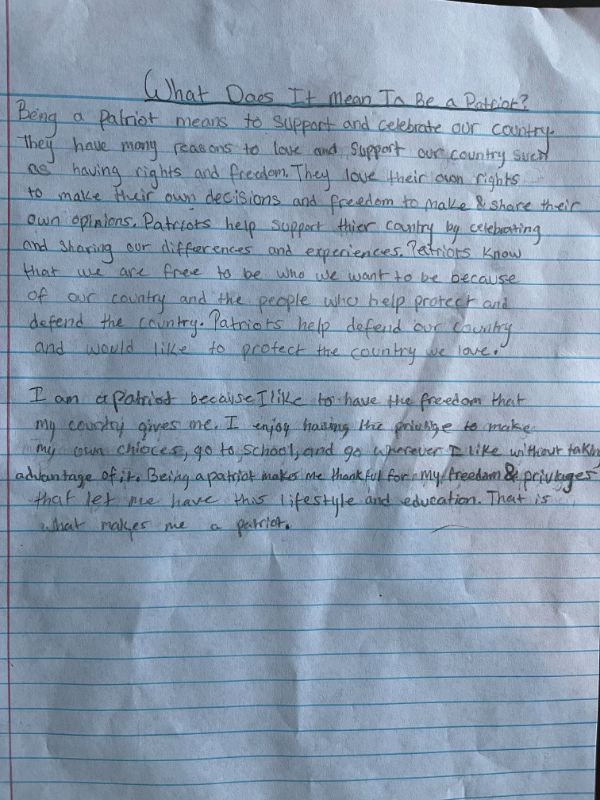 What Does It Mean To Be a Patriot?
Being a Patriot means to support and celebrate our country.
They have many reasons to love and support our country such
as having rights and freedom. They love their own rights
to make their own decisions and freedom to make & share their
own opinions. Patriots help support thier country by celebrating
and sharing our differences and experiences. Patriots know
that we are free to be who we want to be because
of our country and the people who help protect and
defend the country. Patriots help defend our country
and would like to protect the country we love.
I am a patriot because I like to have the freedom that
my country gives me. I enjoy having the privlige to make
my own chioces, go to school, and go wherever I like without takin
advantage of it. Being a patriot makes me thankful for my freedom & privlages
that let me have this lifestyle and education. That is
what makes me a patriot.